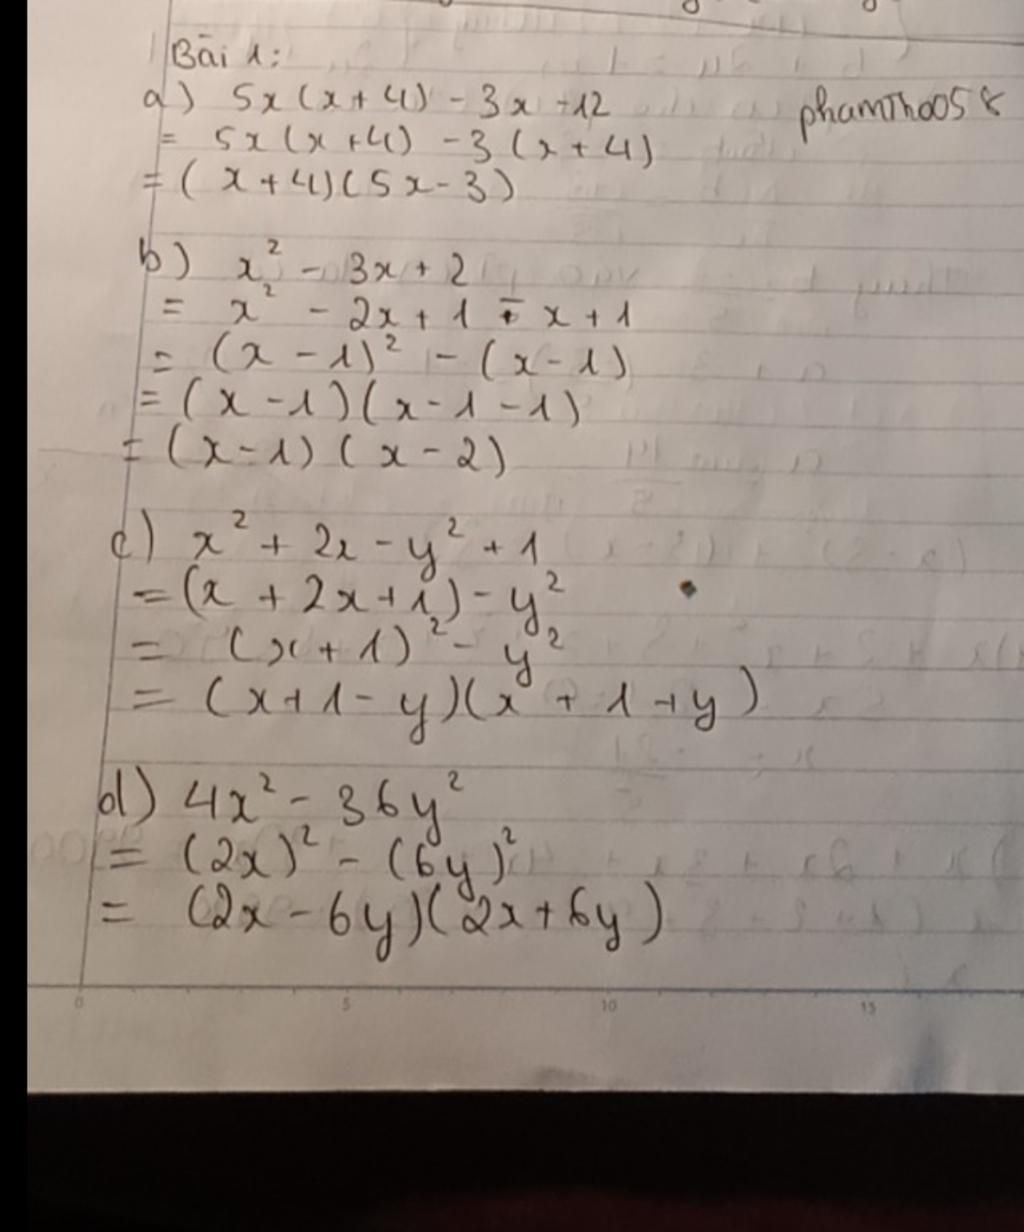 Bài 1:
a) 5x(x+4) - 3x - 12
phamThao058
= 5x(x+4) - 3(x+4)
= (x+4)(5x-3)
b) x² - 3x + 2
= x² - 2x + 1 - x + 1
= (x-1)² - (x-1)
= (x-1)(x-1-1)
= (x-1)(x-2)
c) x² + 2x - y² + 1
= (x + 2x + 1) - y²
= (x+1)² - y²
= (x+1-y)(x+1+y)
d) 4x² - 36y²
= (2x)² - (6y)²
= (2x-6y)(2x+6y)
0 5 10 15